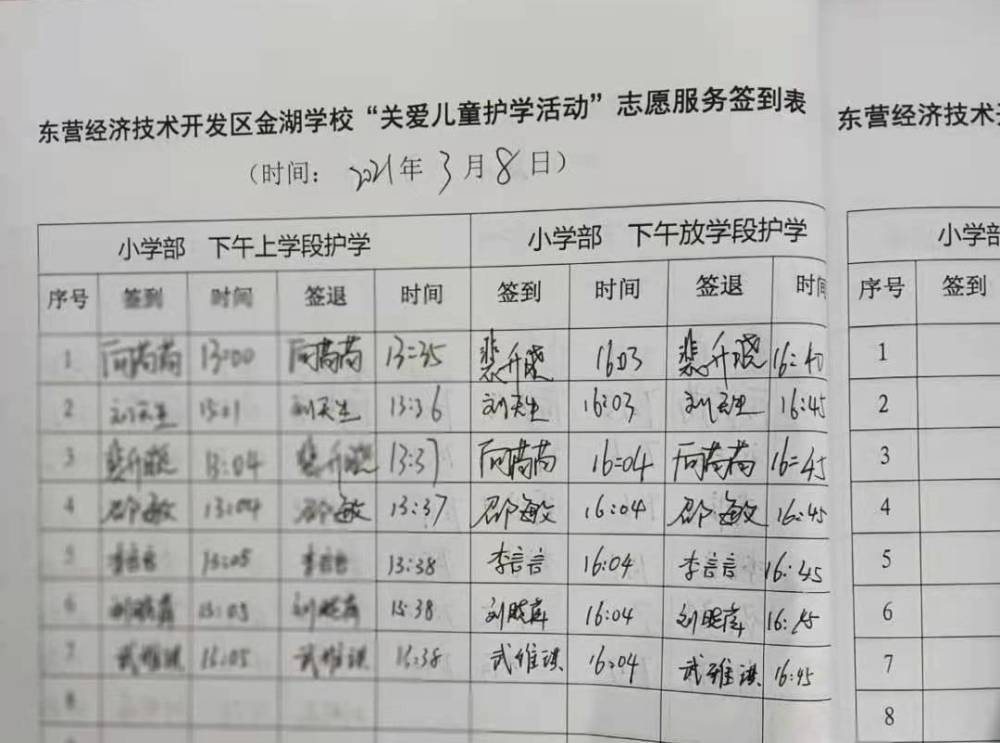 东营经济技术开发区金湖学校“关爱儿童护学活动”志愿服务签到表
（时间： 2021年 3月 8日）
小学部 下午上学段护学 小学部 下午放学段护学
序号 签到 时间 签退 时间 签到 时间 签退 时间
1 13:00 13:35 裴升晓 16:03 裴升晓 16:40
2 刘天生 13:01 刘天生 13:36 刘天生 16:03 刘天生 16:45
3 裴升晓 13:04 裴升晓 13:37 16:04 16:45
4 邵敏 13:04 邵敏 13:37 邵敏 16:04 邵敏 16:45
5 李言言 13:05 李言言 13:38 李言言 16:04 李言言 16:45
6 13:05 15:38 16:04 16:45
7 武维琪 16:05 武维琪 16:38 武维琪 16:04 武维琪 16:45
8
东营经济技术
小学部
序号 签到
1
2
3
4
5
6
7
8